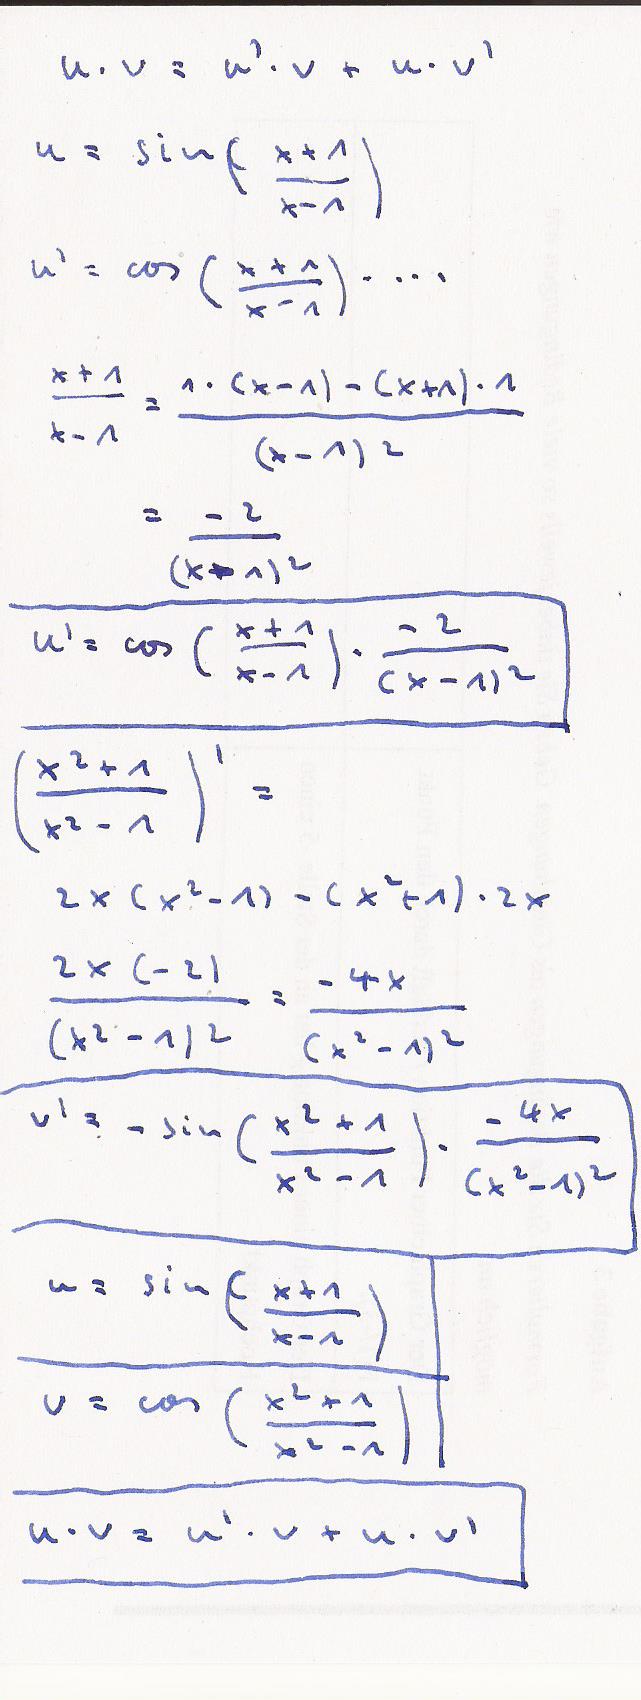 u · v = u' · v + u · v'
u = sin( (x+1)/(x-1) )
u' = cos( (x+1)/(x-1) ) · ....
(x+1)/(x-1) = (1 · (x-1) - (x+1) · 1)/(x-1)²
= -2/(x-1)²
u' = cos( (x+1)/(x-1) ) · -2/(x-1)²
( (x²+1)/(x²-1) )' =
2x(x²-1) - (x²+1) · 2x
2x(-2)/(x²-1)² = -4x/(x²-1)²
v' = -sin( (x²+1)/(x²-1) ) · -4x/(x²-1)²
u = sin( (x+1)/(x-1) )
v = cos( (x²+1)/(x²-1) )
u · v = u' · v + u · v'